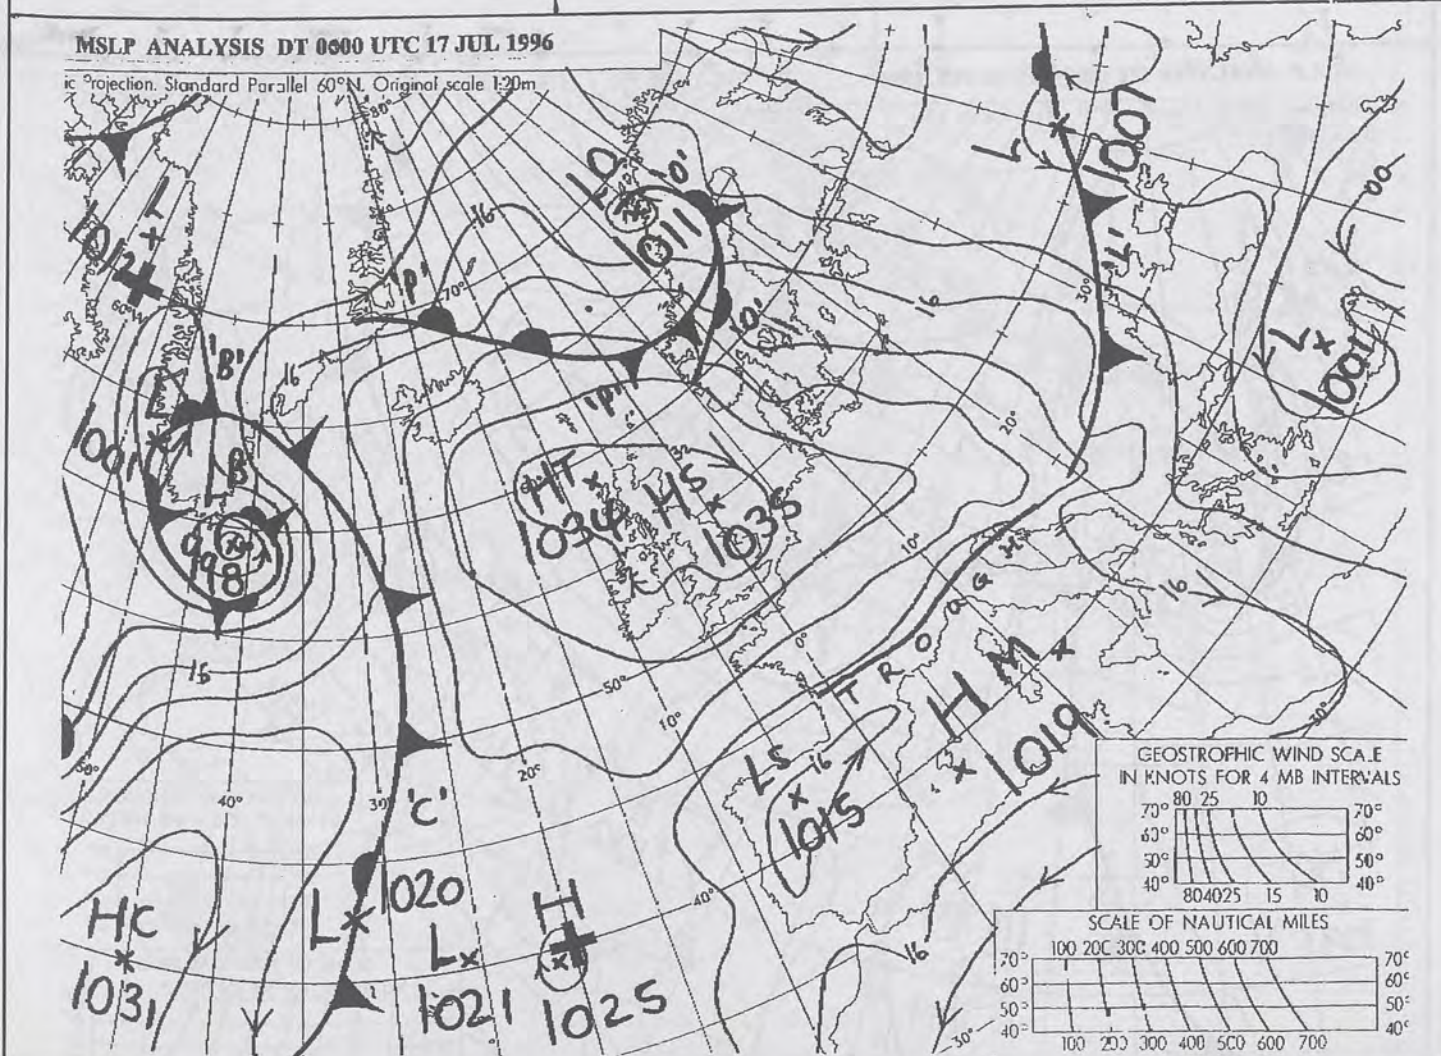 MSLP ANALYSIS DT 0600 UTC 17 JUL 1996
ic Projection. Standard Parallel 60°N. Original scale 1:20m
80°
LO
'O'
1011
L
1007
'L'
00
L
1001
1012
L
60°W
16
'P'
70°
16
30°
'O'
'B'
16
'P'
1001
B
998
HT
1034
HS
1035
20°
10°
0°
TROUGH
16
16
50°
10°
HM
1019
30°
LS
16
1015
50°
40°
30°
20°
'C'
40°
HC
1031
L
1020
L
1021
H
1025
16
30°
GEOSTROPHIC WIND SCALE
IN KNOTS FOR 4 MB INTERVALS
80 25 10
70° 70°
60° 60°
50° 50°
40° 40°
80 40 25 15 10
SCALE OF NAUTICAL MILES
100 200 300 400 500 600 700
70° 70°
60° 60°
50° 50°
40° 40°
100 200 300 400 500 600 700